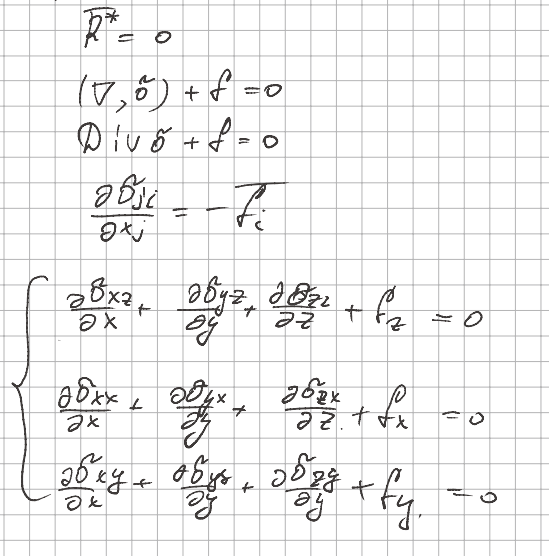 R̅* = 0
(∇, σ̃) + f = 0
Div σ̃ + f = 0
∂σ̃ji/∂xj = -f̅i
∂σxz/∂x + ∂σyz/∂y + ∂σzz/∂z + fz = 0
∂σxx/∂x + ∂σyx/∂y + ∂σzx/∂z + fx = 0
∂σxy/∂x + ∂σyy/∂y + ∂σzy/∂y + fy. = 0